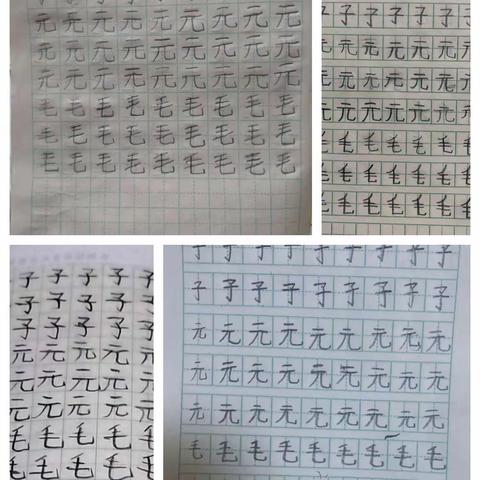 元元元元元元元元元
元元元元元元元元元
元元元元元元元元元
毛毛毛毛毛毛毛毛毛
毛毛毛毛毛毛毛毛毛
毛毛毛毛毛毛毛毛毛
子子子子子子子
元元元元元元元
元元元元元元元
元元元元元元元
毛毛毛毛毛毛毛
毛毛毛毛毛毛毛
毛毛毛毛毛毛毛
子子子子子
子子子子子
子子子子子
元元元元元
元元元元元
元元元元元
毛毛毛毛毛
毛毛毛毛毛
子子子子子子子子子
子子子子子子子子子
元元元元元元元元元
元元元元元元元元元
元元元元元元元元元
毛毛毛毛毛毛毛毛毛